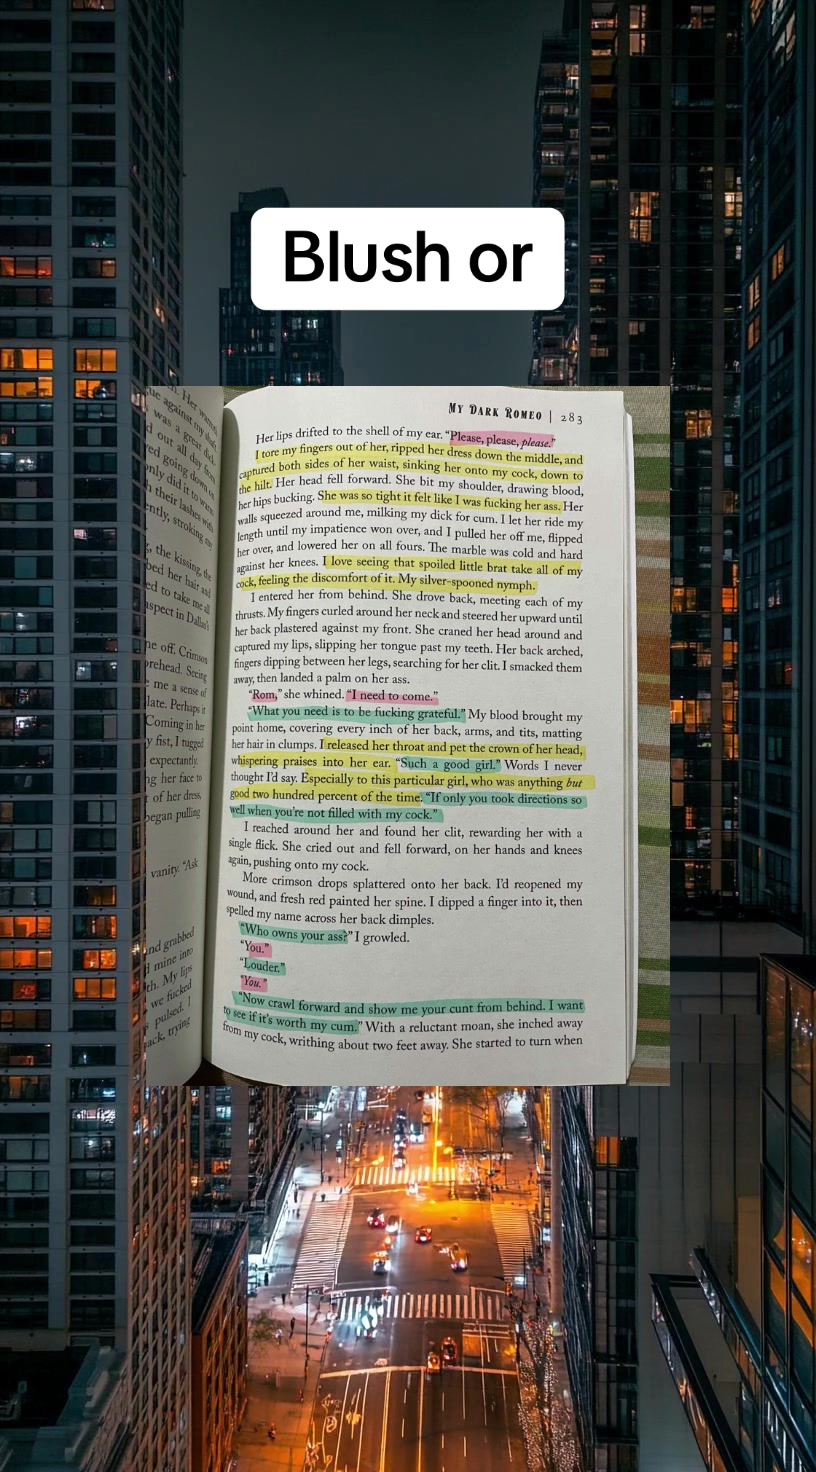 Blush or
MY DARK ROMEO | 283
Her lips drifted to the shell of my ear. “Please, please, please.”
I tore my fingers out of her, ripped her dress down the middle, and
captured both sides of her waist, sinking her onto my cock, down to
the hilt. Her head fell forward. She bit my shoulder, drawing blood,
her hips bucking. She was so tight it felt like I was fucking her ass. Her
walls squeezed around me, milking my dick for cum. I let her ride my
length until my impatience won over, and I pulled her off me, flipped
her over, and lowered her on all fours. The marble was cold and hard
against her knees. I love seeing that spoiled little brat take all of my
cock, feeling the discomfort of it. My silver-spooned nymph.
I entered her from behind. She drove back, meeting each of my
thrusts. My fingers curled around her neck and steered her upward until
her back plastered against my front. She craned her head around and
captured my lips, slipping her tongue past my teeth. Her back arched,
fingers dipping between her legs, searching for her clit. I smacked them
away, then landed a palm on her ass.
“Rom,” she whined. “I need to come.”
“What you need is to be fucking grateful.” My blood brought my
point home, covering every inch of her back, arms, and tits, matting
her hair in clumps. I released her throat and pet the crown of her head,
whispering praises into her ear. “Such a good girl.” Words I never
thought I’d say. Especially to this particular girl, who was anything but
good two hundred percent of the time. “If only you took directions so
well when you’re not filled with my cock.”
I reached around her and found her clit, rewarding her with a
single flick. She cried out and fell forward, on her hands and knees
again, pushing onto my cock.
More crimson drops splattered onto her back. I’d reopened my
wound, and fresh red painted her spine. I dipped a finger into it, then
spelled my name across her back dimples.
“Who owns your ass?” I growled.
“You.”
“Louder.”
“You.”
“Now crawl forward and show me your cunt from behind. I want
to see if it’s worth my cum.” With a reluctant moan, she inched away
from my cock, writhing about two feet away. She started to turn when